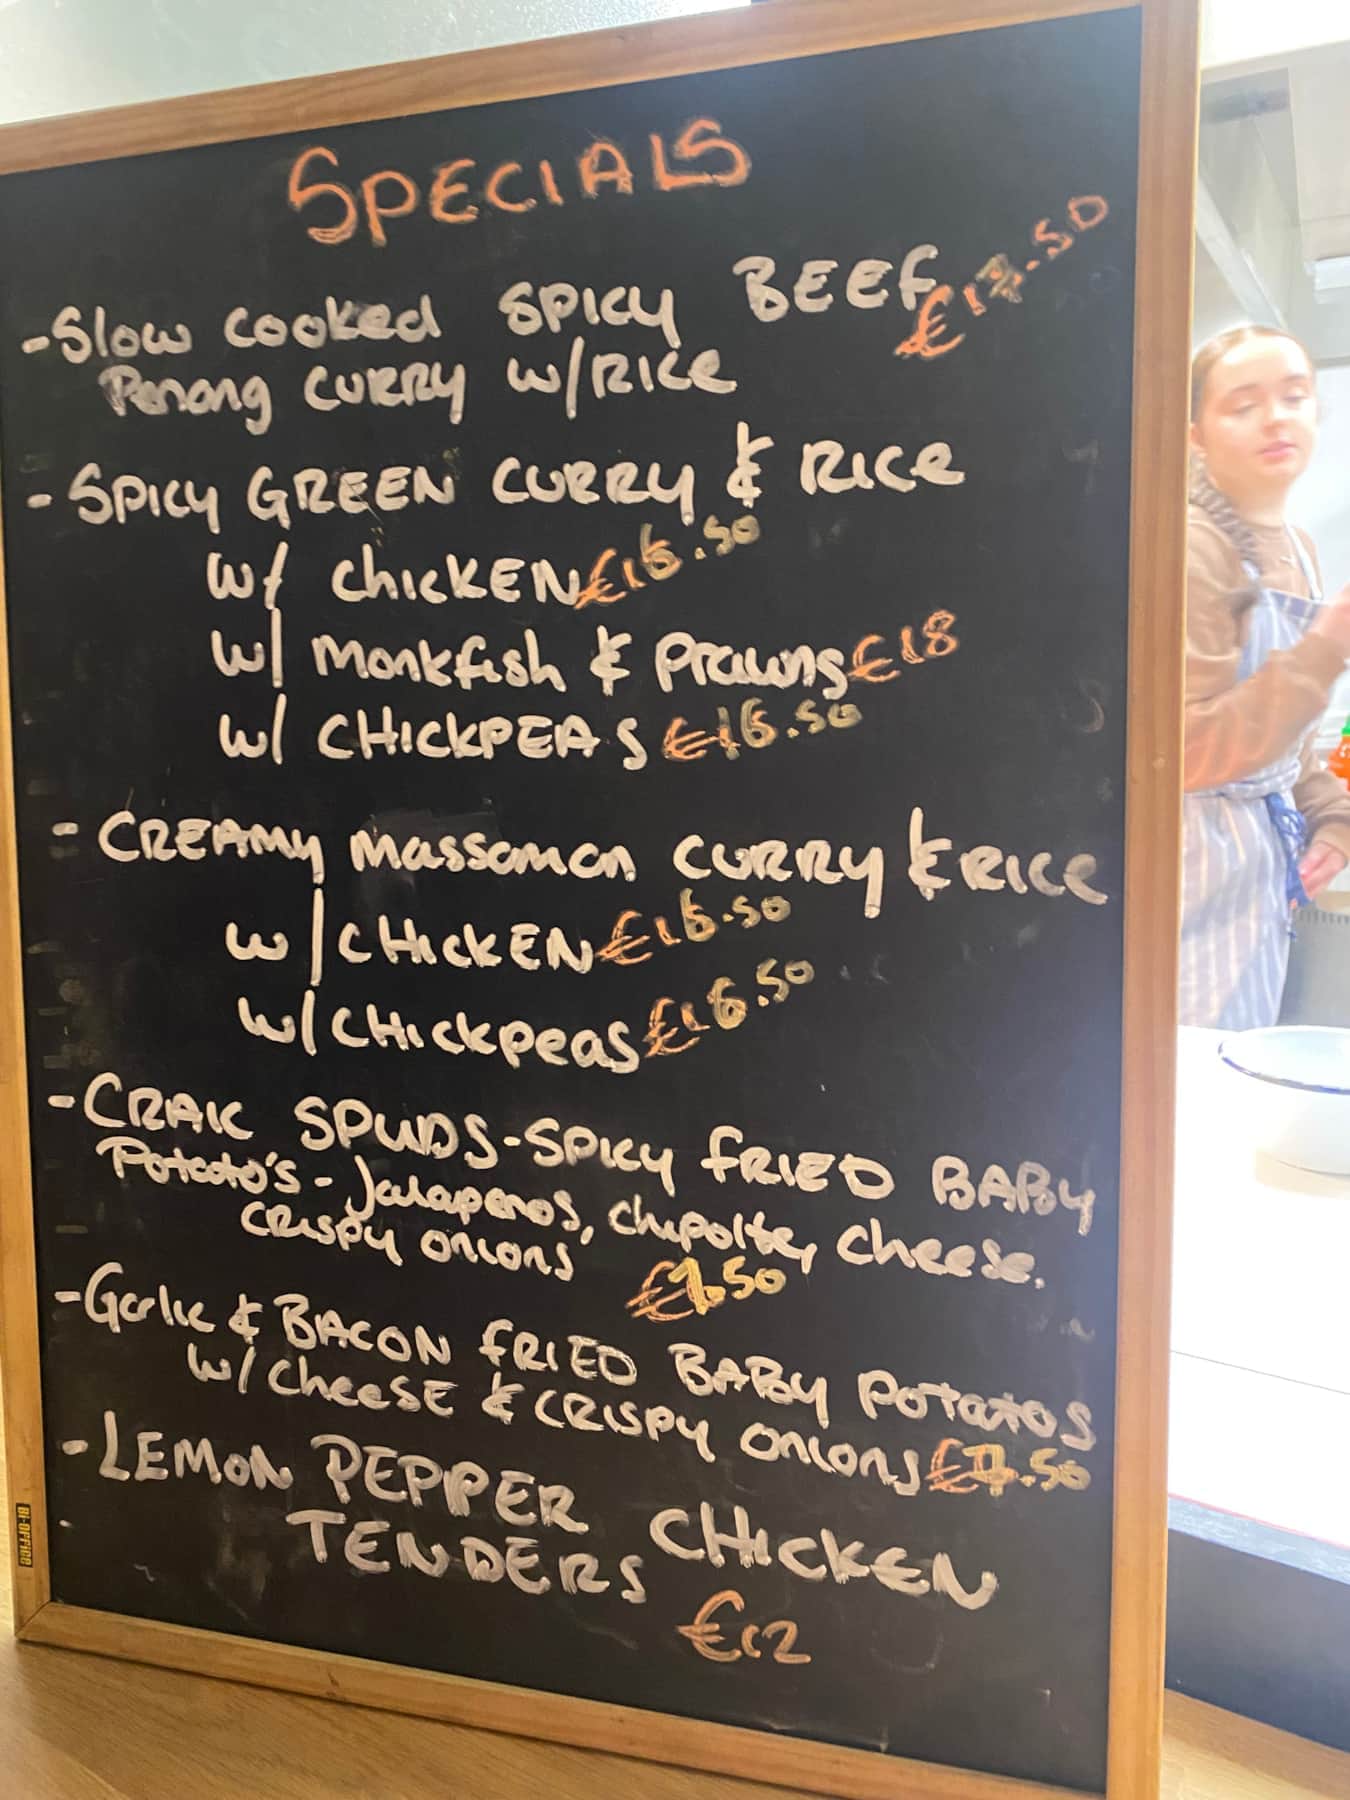 SPECIALS
- Slow cooked SPICY BEEF €17.50
Penang CURRY w/RICE
- SPICY GREEN CURRY & RICE
w/ chicKEN €16.50
w/ monkfish & Prawns €18
w/ CHICKPEAS €16.50
- CREAMY Massaman CURRY & RICE
w/CHICKEN €16.50
w/CHICKPEAS €16.50
- CRAIC SPUDS - SPICY FRIED BABY
Potato's - Jalapenos, chipolte, cheese.
CRISPY onions €7.50
- Garlic & BACON FRIED BABY POTATOS
w/ cheese & CRISPY onions €7.50
- LEMON PEPPER CHICKEN
TENDERS €12
BI-OFFICE